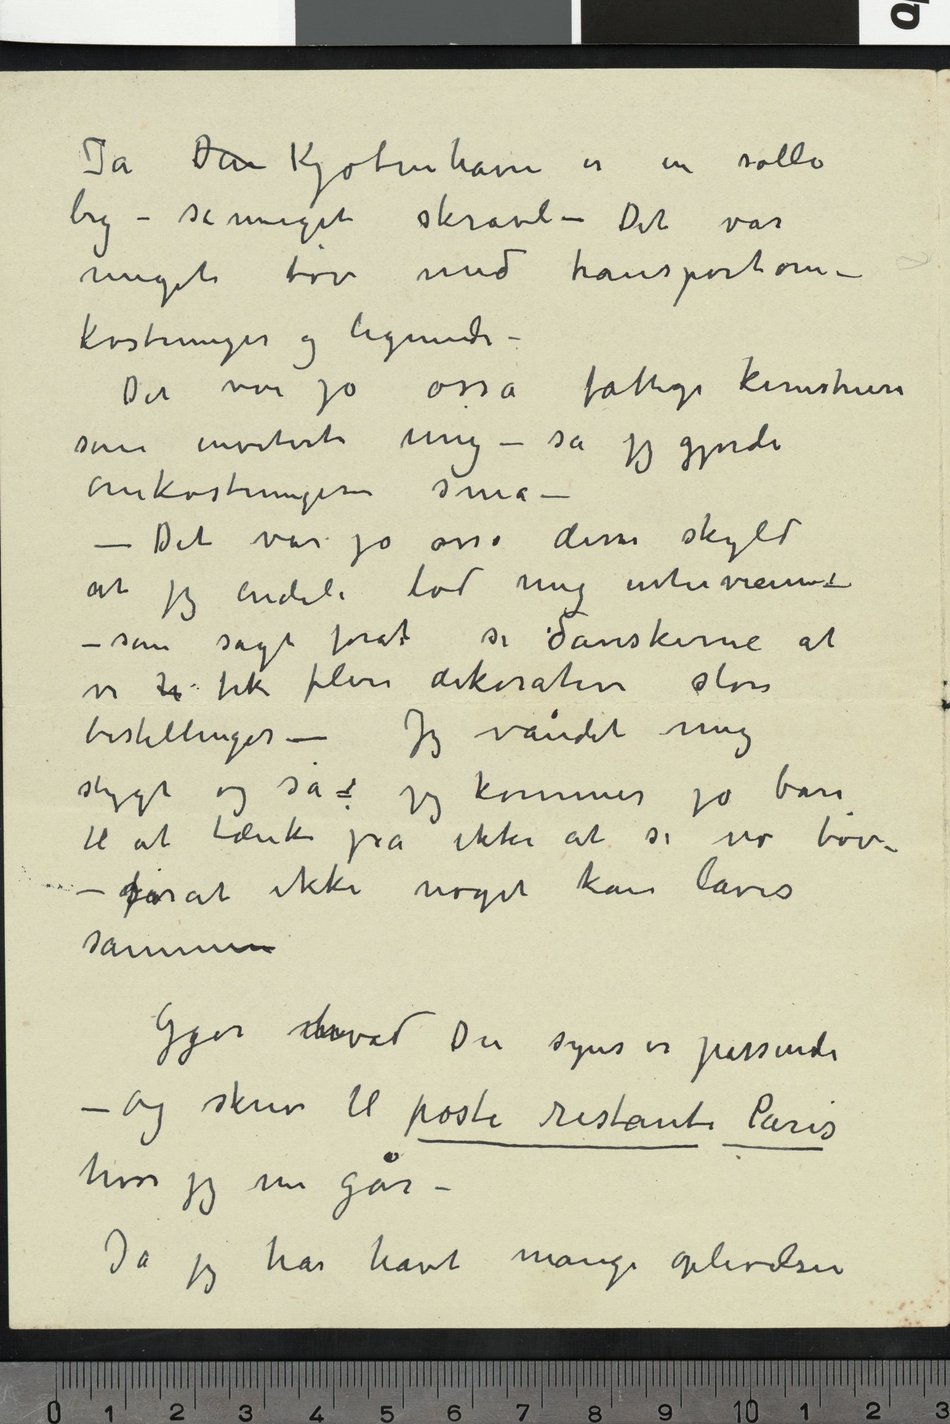 Ja Dan Kjøbenhavn er en rolle
by – så meget skravl – Det var
meget tøv med transportom-
kostninger og lignende –
Det var jo osså fattige kunstnere
som inviterte mig – så jeg gjorde
omkostningerne små –
– Det var jo osså deres skyld
at jeg endeli lod mig interviewe
– som sagt forat si danskerne at
vi fik flere dekorative store
bestillinger – Jeg våndet mig
stygt og så – jeg kommer jo bare
til at tænke på ikke at si no tøv –
– forat ikke noget kan laves
sammen
Gjør hvad Du synes er passende
– og skriv til poste restante Paris
hvor jeg nu går –
Ja jeg har havt mange oplevelser